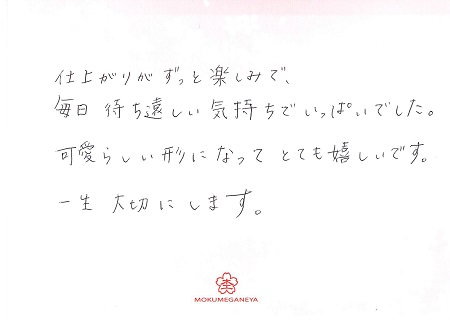 仕上がりがずっと楽しみで、
毎日 待ち遠しい気持ちでいっぱいでした。
可愛らしい形になって とても嬉しいです。
一生 大切にします。
MOKUMEGANEYA